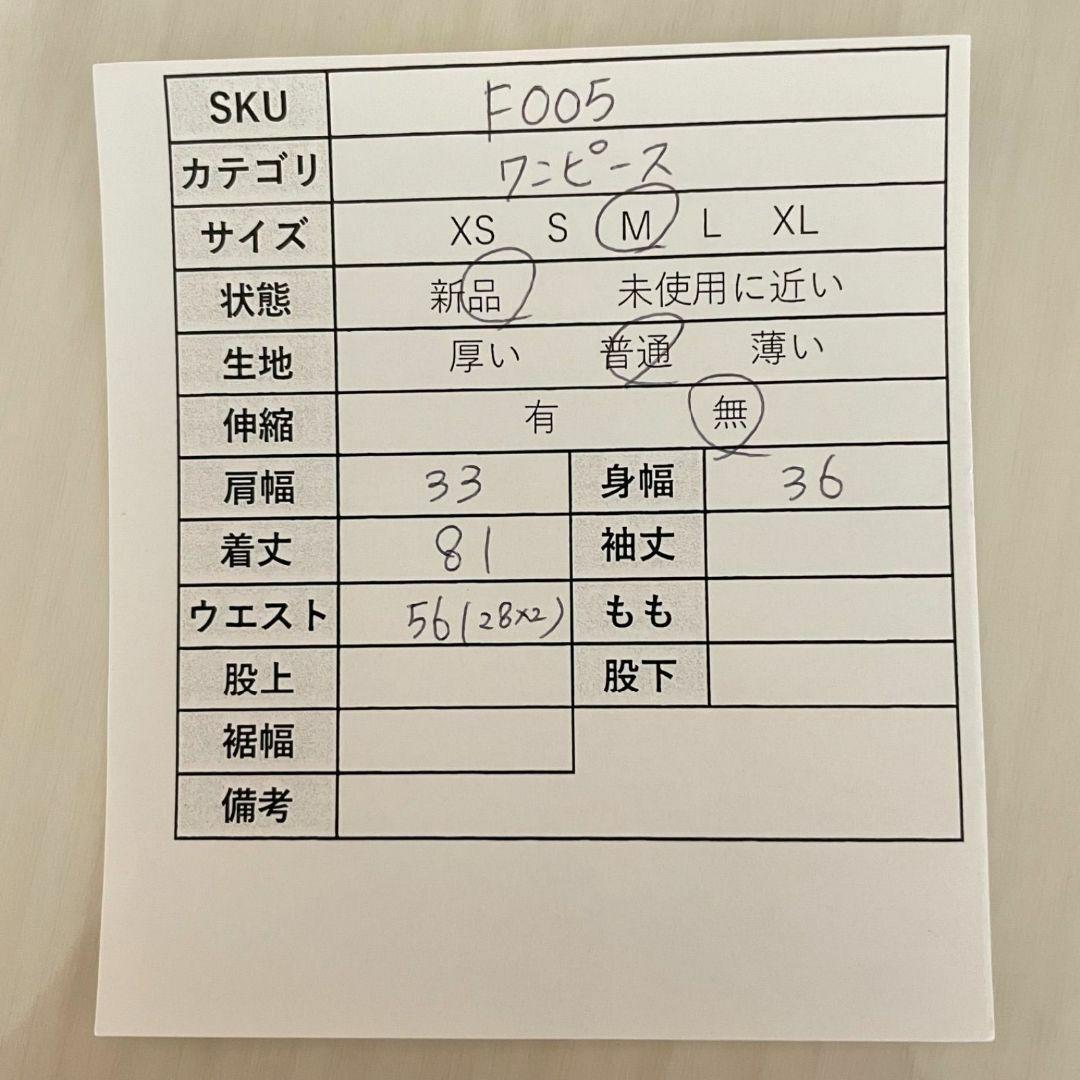 SKU F005
カテゴリ ワンピース
サイズ XS S M L XL
状態 新品 未使用に近い
生地 厚い 普通 薄い
伸縮 有 無
肩幅 33 身幅 36
着丈 81 袖丈
ウエスト 56(28×2) もも
股上 股下
裾幅
備考